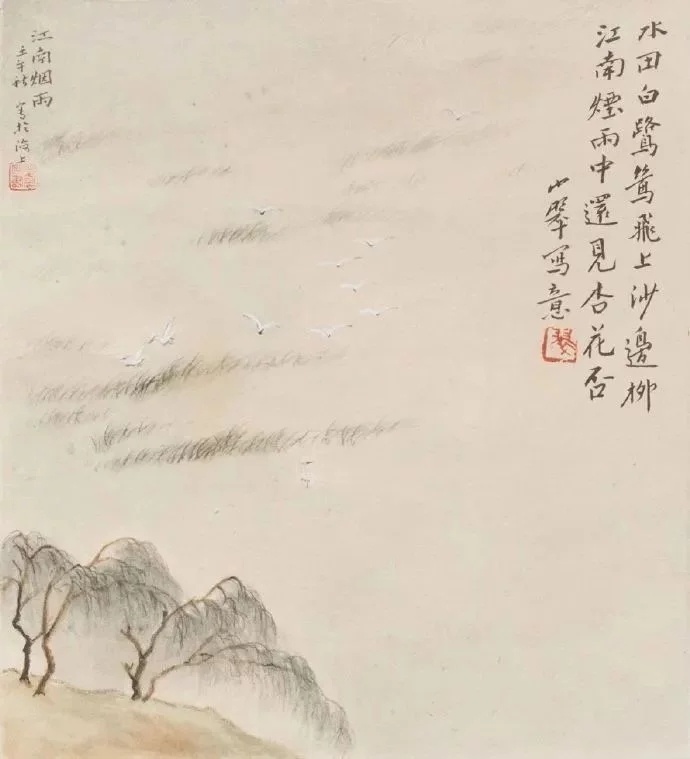 水田白鷺鷥飛上沙邊柳
江南煙雨中還見杏花否
小翠写意
江南烟雨
壬午秋写於海上